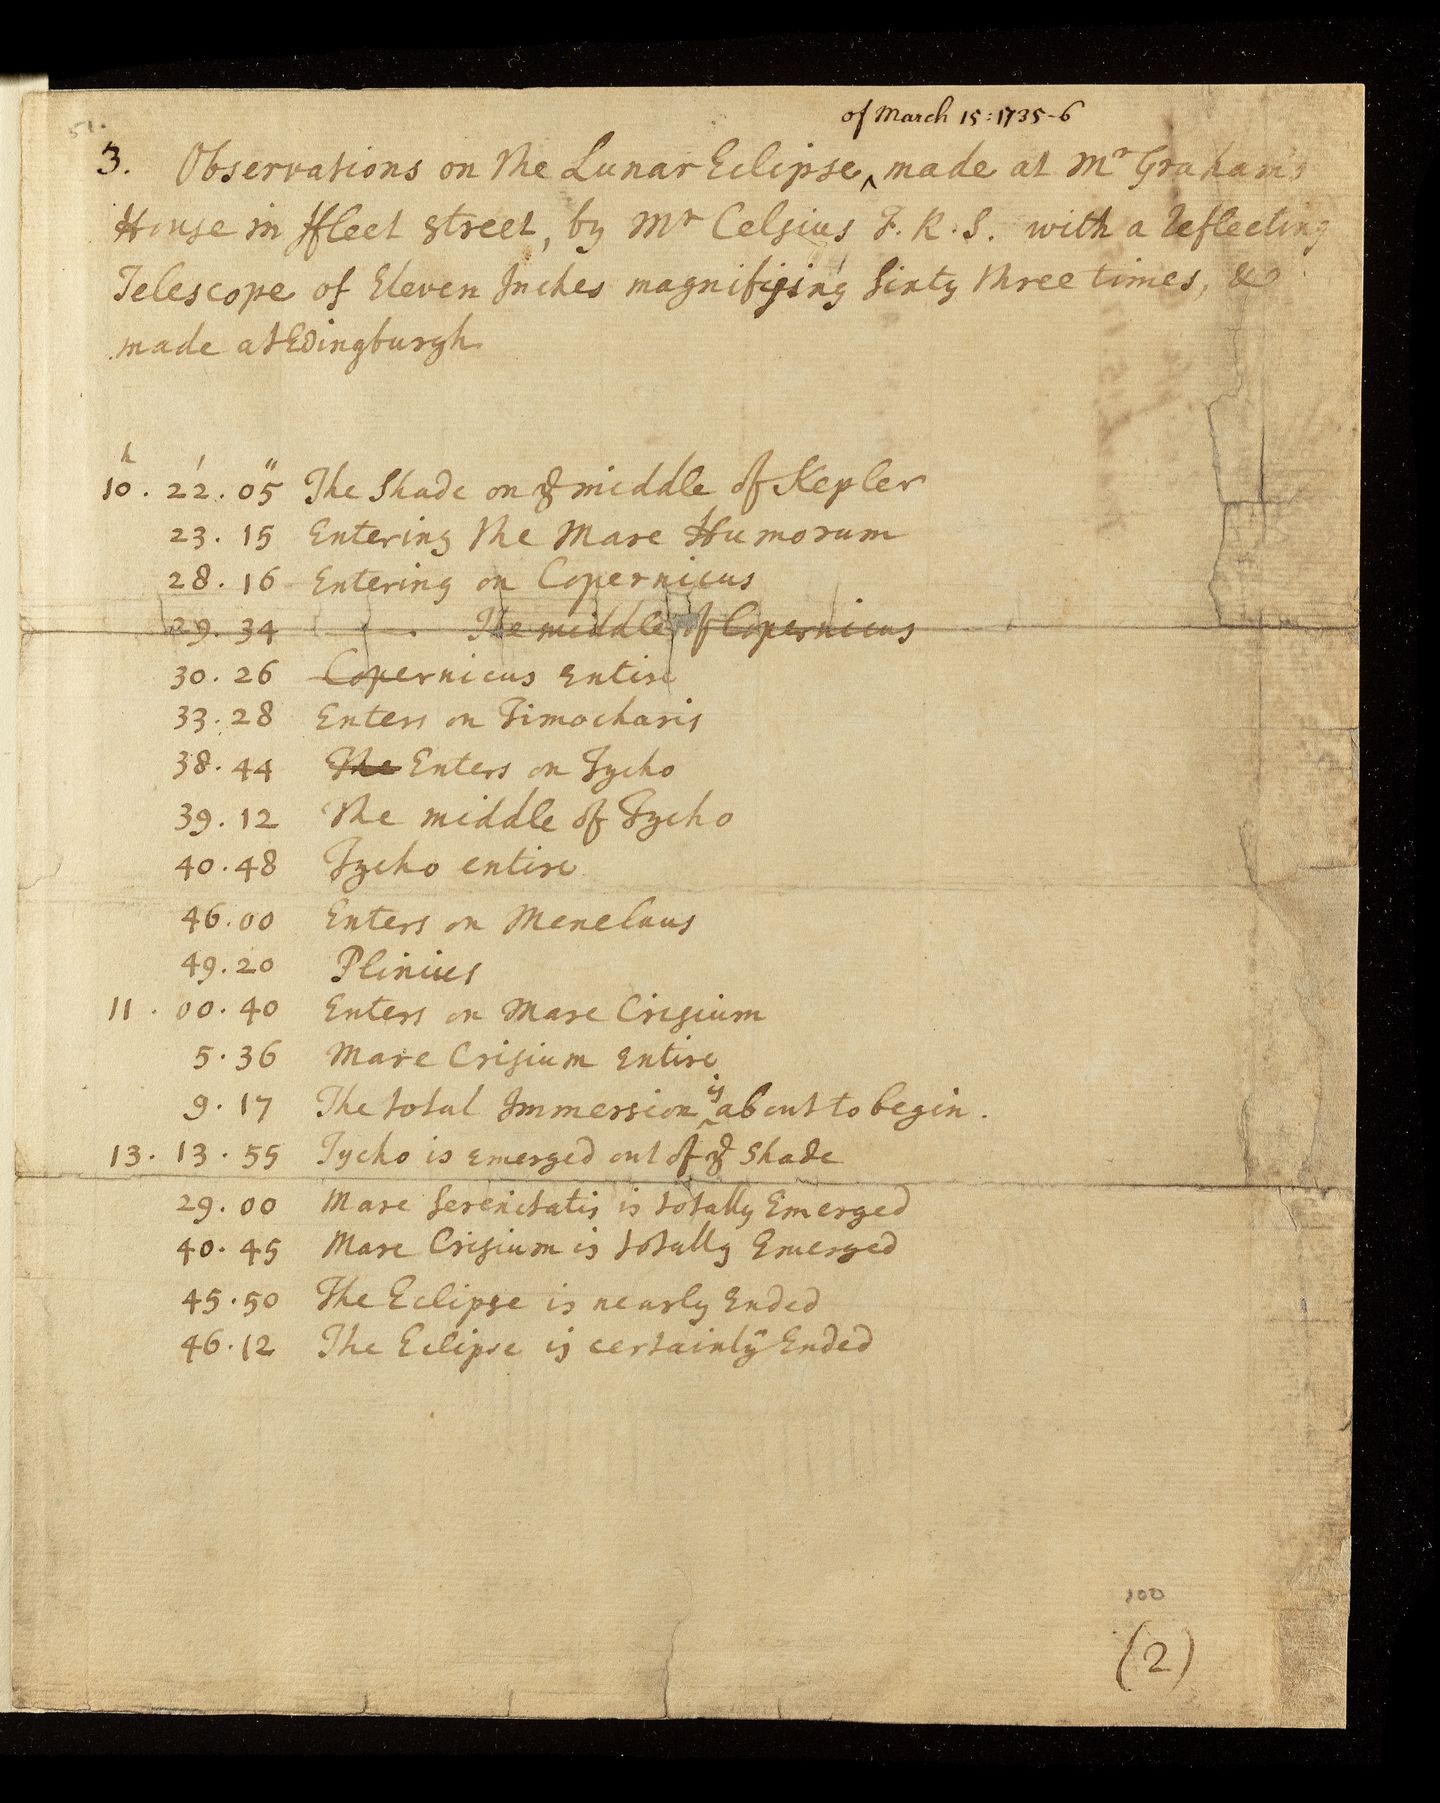 51.
of March 15: 1735-6
3. Observations on the Lunar Eclipse ^ made at Mr Graham's
House in ffleet street, by Mr Celsius F. R. S. with a Reflecting
Telescope of Eleven Inches magnifying Sixty three times, &
made at Edingburgh
h ' "
10. 22. 05 The Shade on ye middle of Kepler
23. 15 Entering the Mare Humorum
28. 16 Entering on Copernicus
29. 34 . The middle of Copernicus
30. 26 Copernicus Entire
33. 28 Enters on Timocharis
38. 44 The Enters on Tycho
39. 12 The middle of Tycho
40. 48 Tycho entire
46. 00 Enters on Menelaus
49. 20 Plinius
11. 00. 40 Enters on Mare Crisium
5. 36 Mare Crisium Entire
9. 17 The total Immersion ^is about to begin.
13. 13. 55 Tycho is emerged out of ye Shade
29. 00 Mare Serenitatis is totally Emerged
40. 45 Mare Crisium is totally Emerged
45. 50 The Eclipse is nearly Ended
46. 12 The Eclipse is certainly Ended
100
(2)